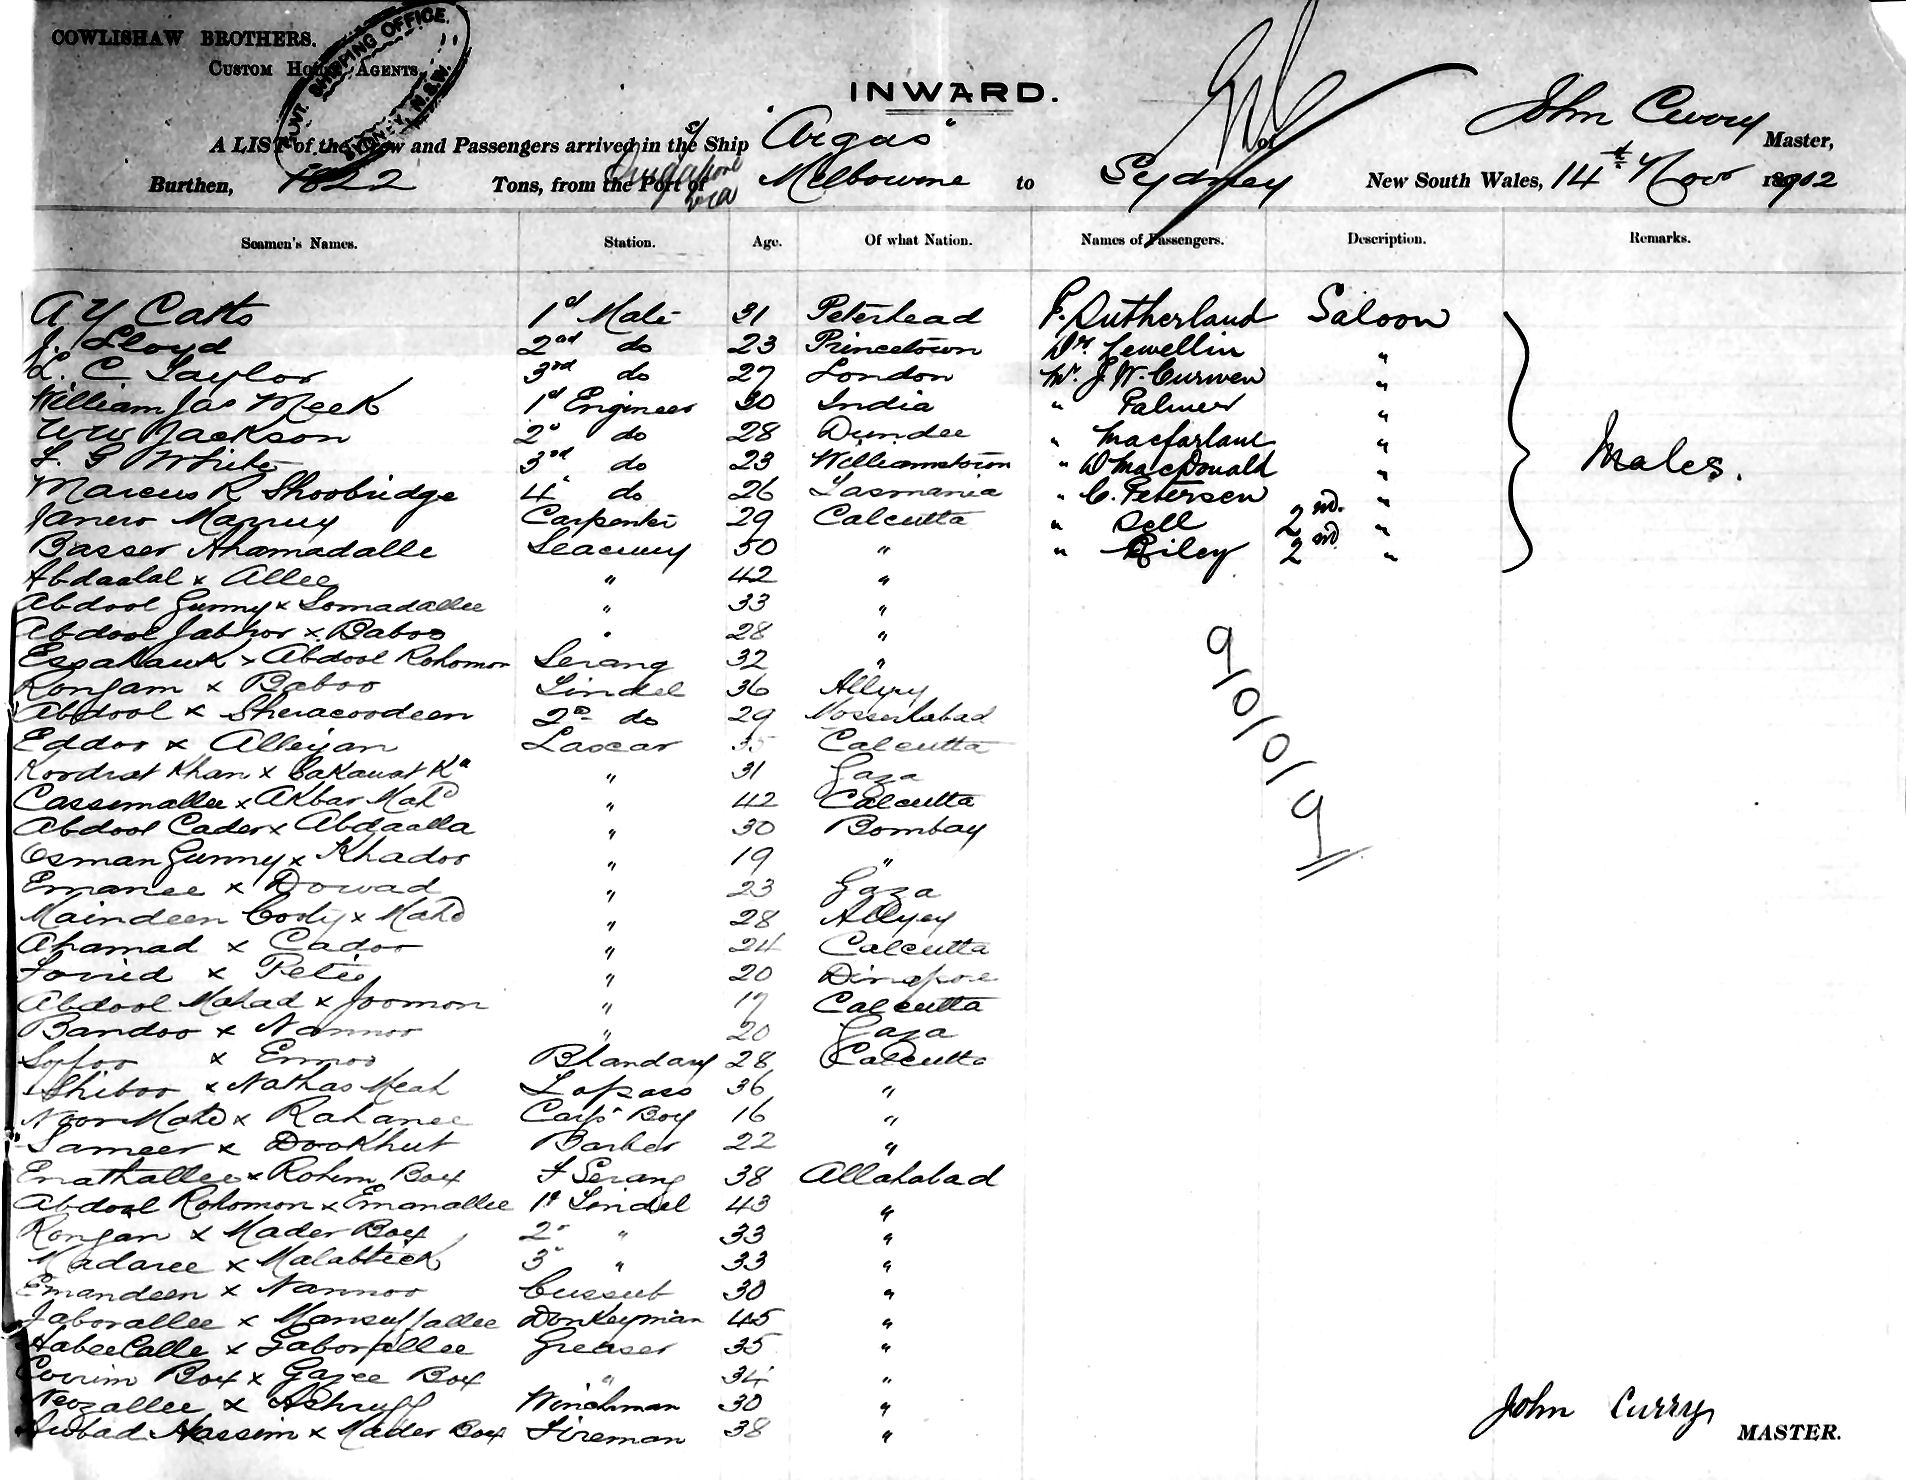 COWLISHAW BROTHERS.
CUSTOM HOUSE AGENTS.
GOVT. SHIPPING OFFICE. SYDNEY, N.S.W.
INWARD.
A LIST of the Crew and Passengers arrived in the s/ Ship "Argus" of John Curry Master,
Burthen, 1822 Tons, from the Port of Singapore via Melbourne to Sydney New South Wales, 14th Nov 1902
Seamen's Names. Station. Age. Of what Nation. Names of Passengers. Description. Remarks.
A Y Catto 1st Mate 31 Peterhead F. Sutherland Saloon
J. Lloyd 2nd do 23 Princetown Dr. Lewellin "
L. C Taylor 3rd do 27 London Mr. J. W. Curwen "
William Jas Meek 1st Engineer 30 India " Palmer "
W W Jackson 2" do 28 Dundee " Macfarlane "
F. G White 3rd do 23 Williamstown " D MacDonald "
Marcus R Shoobridge 4" do 26 Tasmania " C. Petersen "
Carpenter 29 Calcutta " Sell 2nd. "
Basser Ahamadalle Seacunny 50 " " Riley 2nd "
Males.
Abdaalal x Allee " 42 "
Abdool Gunny x Somadallee " 33 "
Abdool Jabhor x Baboo " 28 "
Essahauk x Abdool Rohomon Serang 32 "
Rongam x Baboo Tindel 36
Abdool x Sheracoodeen 2nd do 29
Eddoo x Alleyan Lascar 35 Calcutta
Koodrat Khan x Sakawat Kn " 31 Gaza
Cassimallee x Akbar Mahd " 42 Calcutta
Abdool Cader x Abdaalla " 30 Bombay
Osman Gunny x Khadoo " 19 "
Emanee x Dowad " 23 Gaza
Maindeen Cody x Mahd " 28 Allyey
Ahamad x Cadoo " 24 Calcutta
x " 20 Dinapore
Abdool Mahad x Joomon " 17 Calcutta
Bandoo x Nannoo " 20 Gaza
x Emoo Bhandary 28 Calcutta
Shiboo x Nathas Meah Topass 36 "
Noor Mahd x Rahanee Carp Boy 16 "
Sameer x Dookhut Barber 22 "
Emathallee x Rohim Box F Serang 38 Allahabad
Abdool Rohomon x Emanallee 1st Tindel 43 "
Rongan x Mader Box 2" " 33 "
Madaree x Malabteek 3" " 33 "
Emandeen x Nannoo Cussub 30 "
Jaborallee x Mansuffallee Donkeyman 45 "
Habeecalle x Gaborallee Greaser 35 "
Corrim Box x Gazee Box " 34 "
Neozallee x Ashruff Winchman 30 "
Nassim x Mader Box Fireman 38 "
9/0/0/9
John Curry MASTER.